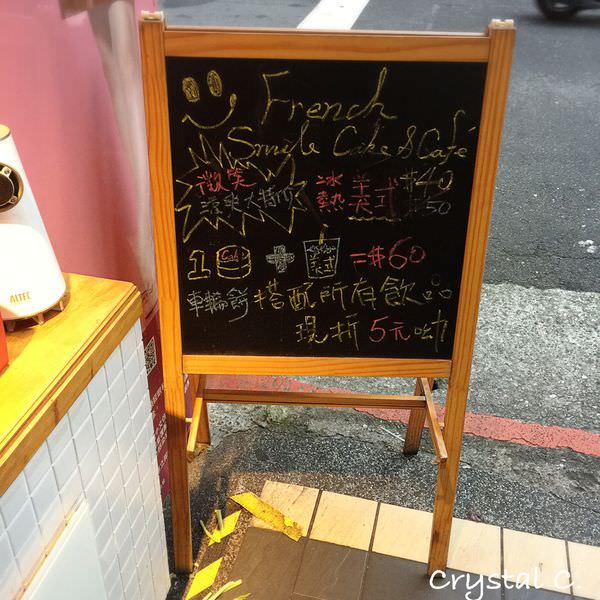 French
Smile Cake & Café
微笑
清爽大特價
冰 美式 $40
熱 $50
1 Cake + 美式 = $60
車輪餅 搭配所有飲品
現折 5元呦
ALTEC
Crystal C.